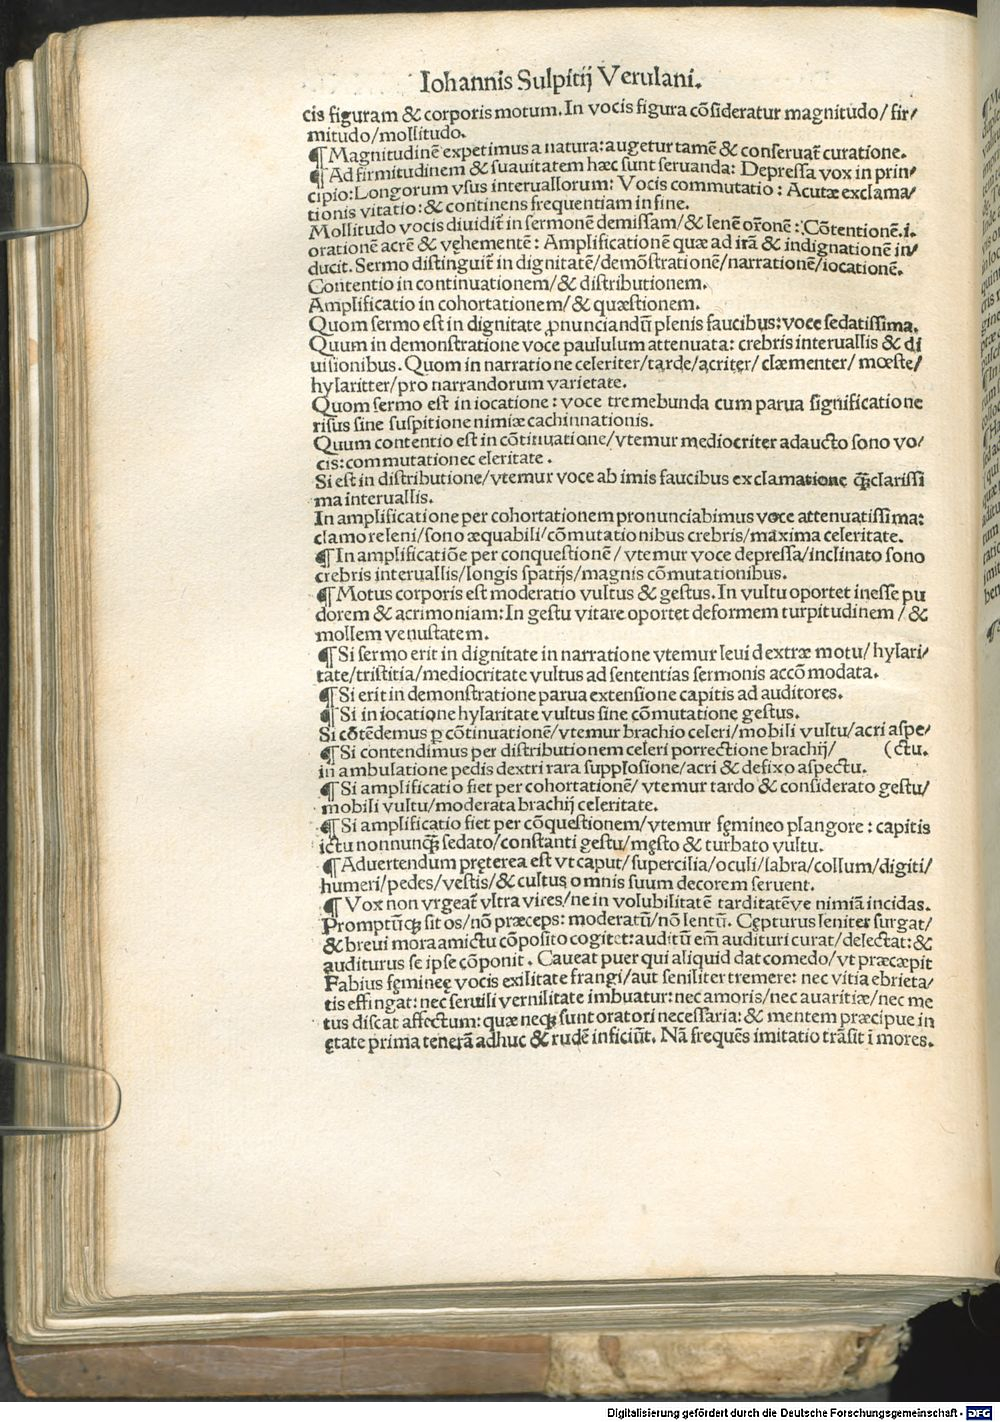 Iohannis Sulpitij Verulani.
cis figuram & corporis motum. In vocis figura cõsideratur magnitudo/ fir/
mitudo/mollitudo.
¶ Magnitudinẽ expetimus a natura: augetur tamẽ & conseruat̃ curatione.
¶ Ad firmitudinem & suauitatem hæc sunt seruanda: Depressa vox in prin/
cipio: Longorum vsus interuallorum: Vocis commutatio: Acutæ exclama/
tionis vitatio: & continens frequentiam in fine.
Mollitudo vocis diuidit̃ in sermonẽ demissam/& lenẽ or̃onẽ: Cõtentionẽ.i.
orationẽ acrẽ & vęhementẽ: Amplificationẽ quæ ad irã & indignationẽ in/
ducit. Sermo distinguit̃ in dignitatẽ/demõstrationẽ/narrationẽ/iocationẽ.
Contentio in continuationem/& distributionem.
Amplificatio in cohortationem/& quæstionem.
Quom sermo est in dignitate ꝓnunciandũ plenis faucibus: voce sedatissima.
Quum in demonstratione voce paululum attenuata: crebris interuallis & di
uisionibus. Quom in narratione celeriter/tarde/acriter/ clæmenter/ mœste/
hylaritter/pro narrandorum varietate.
Quom sermo est in iocatione: voce tremebunda cum parua significatione
risus sine suspitione nimiæ cachinnationis.
Quum contentio est in cõtinuatione/vtemur mediocriter adaucto sono vo/
cis: commutationec eleritate.
Si est in distributione/vtemur voce ab imis faucibus exclamatione q̃ꝫclarissi
ma interuallis.
In amplificatione per cohortationem pronunciabimus voce attenuatissima:
clamore leni/sono æquabili/cõmutationibus crebris/maxima celeritate.
¶ In amplificatiõe per conquestionẽ/ vtemur voce depressa/inclinato sono
crebris interuallis/longis spatijs/magnis cõmutationibus.
¶ Motus corporis est moderatio vultus & gestus. In vultu oportet inesse pu
dorem & acrimoniam: In gestu vitare oportet deformem turpitudinem / &
mollem venustatem.
¶ Si sermo erit in dignitate in narratione vtemur leui dextræ motu/ hylari/
tate/tristitia/mediocritate vultus ad sententias sermonis accõmodata.
¶ Si erit in demonstratione parua extensione capitis ad auditores.
¶ Si in iocatione hylaritate vultus sine cõmutatione gestus.
Si cõtẽdemus ꝑ cõtinuationẽ/vtemur brachio celeri/mobili vultu/acri aspe/
¶ Si contendimus per distributionem celeri porrectione brachij/ (ctu.
in ambulatione pedis dextri rara supplosione/acri & defixo aspectu.
¶ Si amplificatio fiet per cohortationẽ/ vtemur tardo & considerato gestu/
mobili vultu/moderata brachij celeritate.
¶ Si amplificatio fiet per cõquestionem/vtemur fęmineo plangore: capitis
ictu nonnunq̃ꝫ sedato/constanti gestu/męsto & turbato vultu.
¶ Aduertendum pręterea est vt caput/supercilia/oculi/labra/collum/digiti/
humeri/pedes/vestis/& cultus omnis suum decorem seruent.
¶ Vox non vrgeat̃ vltra vires/ne in volubilitatẽ tarditatẽve nimiã incidas.
Promptũqꝫ sit os/nõ præceps: moderatũ/nõ lentũ. Cępturus leniter surgat/
& breui mora amictu cõposito cogitet: auditũ em̃ audituri curat/delectat: &
auditurus se ipse cõponit. Caueat puer qui aliquid dat comedo/vt præcæpit
Fabius fęmineę vocis exilitate frangi/aut seniliter tremere: nec vitia ebrieta/
tis effingat: nec seruili vernilitate imbuatur: nec amoris/nec auaritiæ/nec me
tus discat affectum: quæ neqꝫ sunt oratori necessaria: & mentem præcipue in
ętate prima tenerã adhuc & rudẽ inficiũt. Nã frequẽs imitatio trãsit ĩ mores.
Digitalisierung gefördert durch die Deutsche Forschungsgemeinschaft - DFG